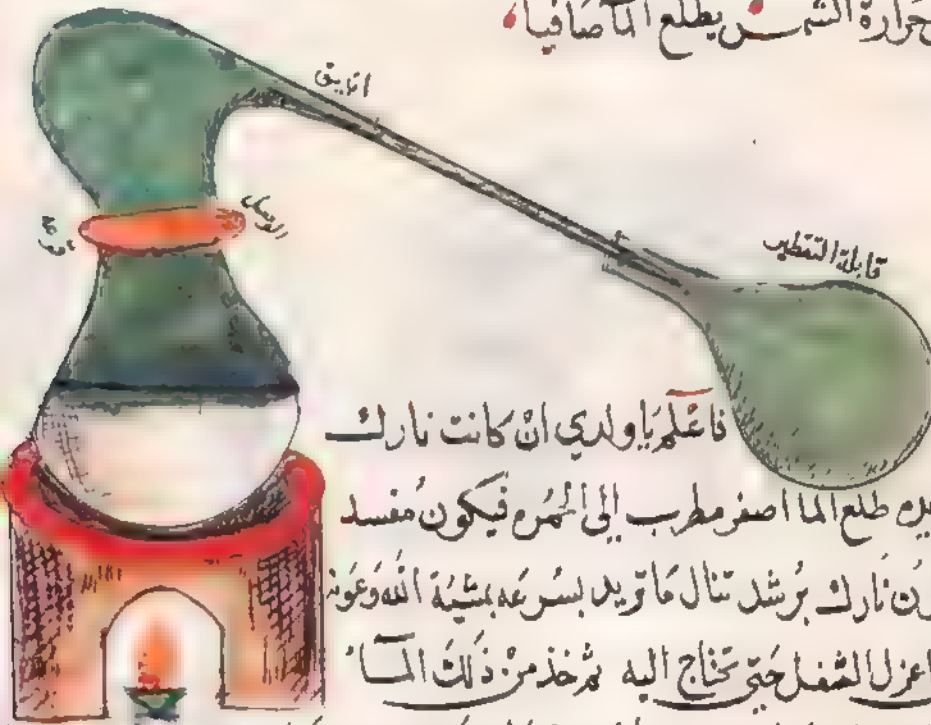 حرارة الشمس يطلع الما صافيا
انبيق
قابلة التقطير
فاعلم يا ولدي ان كانت نارك
طلع الما اصفر مطرب الى الحمره فيكون مفسد
نارك برشد تنال ما تريد بسرعه بمشية الله وعونه
اعزل الثفل حتى تحتاج اليه ثم خذ من ذلك الما